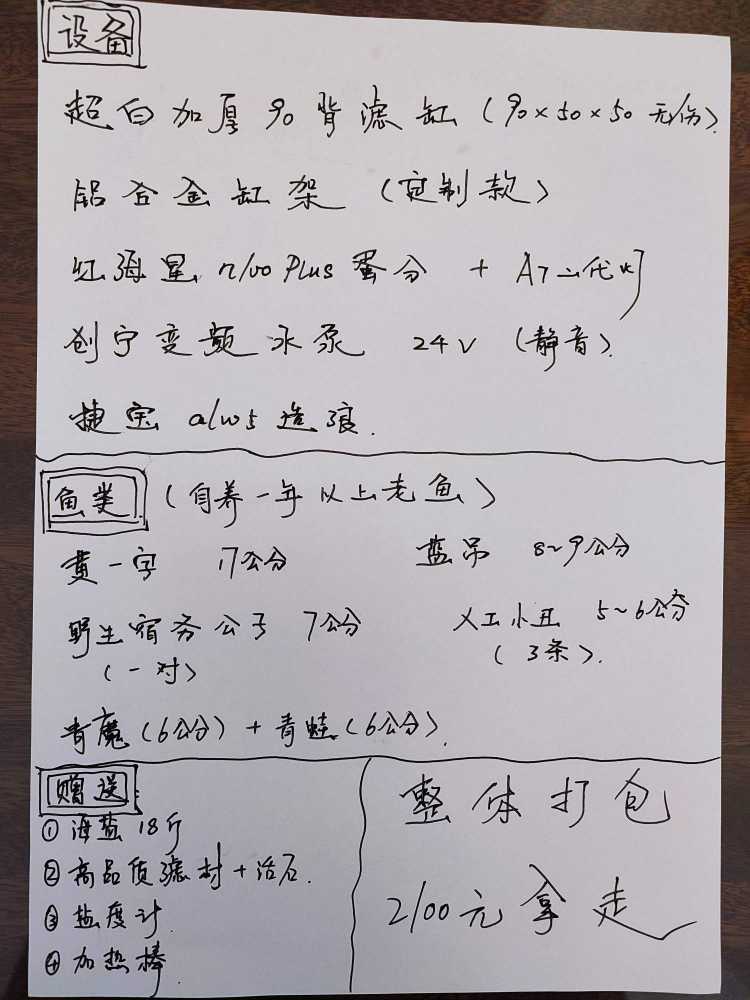 设备
超白加厚90背滤缸（90×50×50 无伤）.
铝合金缸架（定制款）
红海星 n100 Plus 蛋分 + A7二代灯
创宁变频水泵 24V（静音）.
捷宝 alw5 造浪.
鱼类（自养一年以上老鱼）
黄一字 17公分 蓝吊 8~9公分
野生宿务公子 7公分 人工小丑 5~6公分
（一对） （3条）.
青魔（6公分）+ 青蛙（6公分）.
赠送：
① 海盐 18斤
② 高品质滤材+活石.
③ 盐度计
④ 加热棒
整体打包
2100元拿走